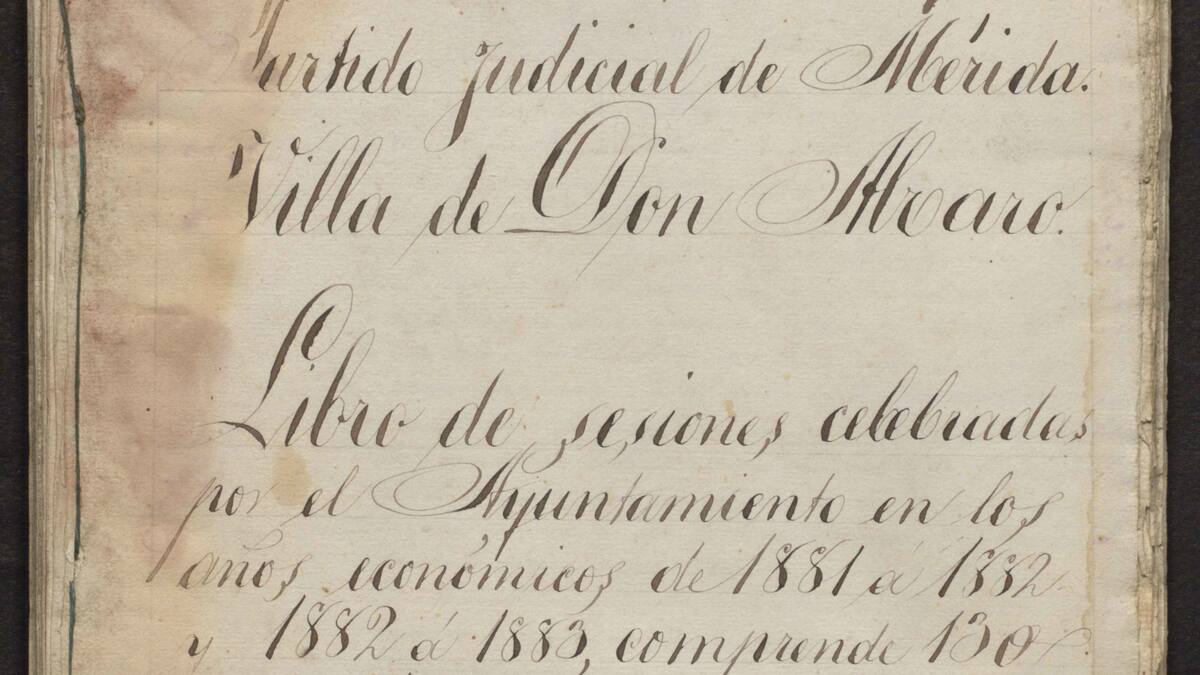 Partido Judicial de Mérida.
Villa de Don Alvaro.
Libro de sesiones celebradas
por el Ayuntamiento en los
años económicos de 1881 á 1882
y 1882 á 1883, comprende 130